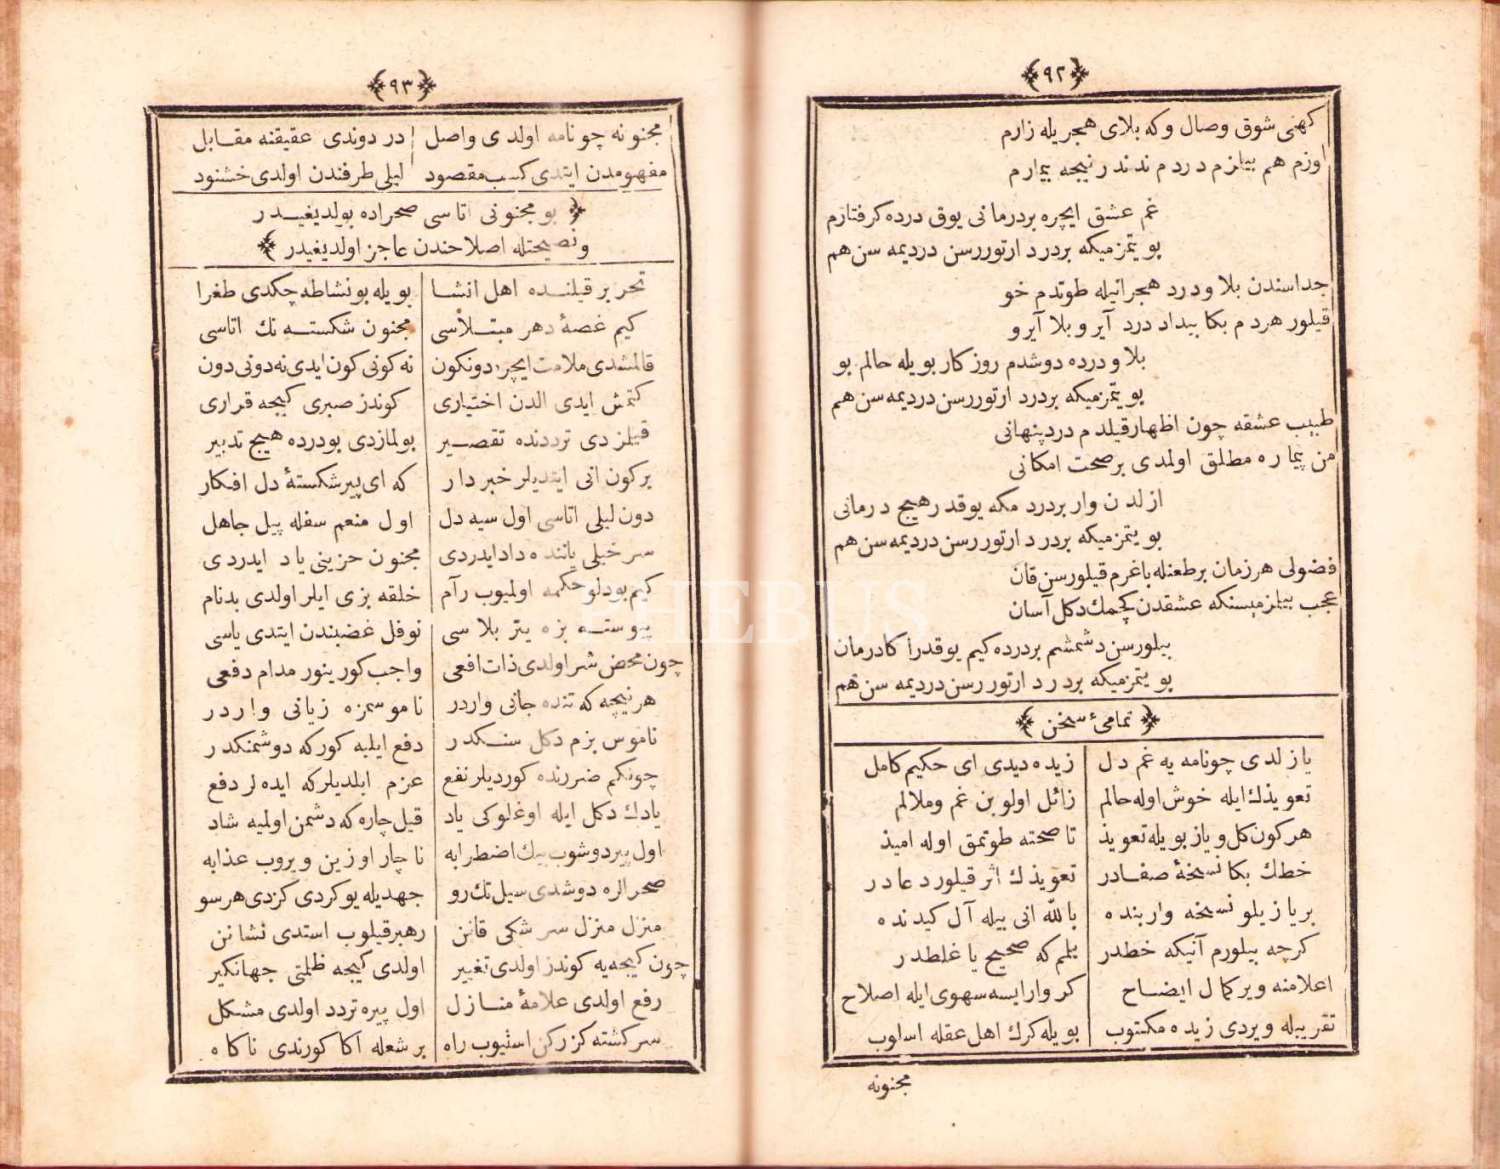 ﴿٩٢﴾
كهی شوق وصال وكه بلای هجریله زارم
اوزم هم بیلزم دردم ندندر نیجه بیمارم
غم عشق ایچره بردرمانی یوق درده كرفتارم
بو یتمزمیكه بردرد ارتوررسن دردیمه سن هم
جداسندن بلا ودرد هجرانیله طوتدم خو
قیلور هردم بكا بیداد درد آیرو بلا آیرو
بلا ودرده دوشدم روزكار بویله حالم بو
بو یتمزمیكه بردرد ارتوررسن دردیمه سن هم
طبیب عشقه چون اظهارقیلدم دردپنهانی
من بیماره مطلق اولمدی برصحت امكانی
ازلدن وار بردرد مكه یوقدر هیچ درمانی
بو یتمزمیكه بردرد ارتوررسن دردیمه سن هم
فضولی هرزمان برطعنله باغرم قیلورسن قان
عجب بیلزمیسنكه عشقدن كچمك دكل آسان
بیلورسن دشمشم بردرده كیم یوقدر اكا درمان
بو یتمزمیكه بردرد ارتوررسن دردیمه سن هم
﴿ تمامئ سخن ﴾
یازلدی چونامه یه غم دل زیده دیدی ای حكیم كامل
تعویذك ایله خوش اوله حالم زائل اولوبن غم وملالم
هركون كل ویاز بویله تعویذ تا صحته طوتمق اوله امیذ
خطك بكا نسخهٔ صفادر تعویذك اثر قیلور دعادر
بریازیلو نسخه واربنده بالله انی بیله آل كیدنده
كرچه بیلورم آنیكه خطدر بلم كه صحیح یا غلطدر
اعلامنه ویر كمال ایضاح كر وارایسه سهوی ایله اصلاح
تقریبله ویردی زیده مكتوب بویله كرك اهل عقله اسلوب
مجنونه
﴿٩٣﴾
مجنونه چونامه اولدی واصل در دوندی عقیقنه مقابل
مفهومدن ایتدی كسب مقصود لیلی طرفندن اولدی خشنود
﴿ بو مجنونی اتاسی صحراده بولدیغیدر
ونصیحتله اصلاحندن عاجز اولدیغیدر ﴾
تحریر قیلنده اهل انشا بویله بونشاطه چكدی طغرا
كیم غصهٔ دهر مبتلاسی مجنون شكسته نك اتاسی
قالمشدی ملامت ایچره دونكون نه كونی كون ایدی نه دونی دون
كتمش ایدی الدن اختیاری كوندز صبری كیجه قراری
قیلزدی ترددنده تقصیر بولمازدی بودرده هیچ تدبیر
بركون انی ایتدیلر خبردار كه ای پیر شكستهٔ دل افكار
دون لیلی اتاسی اول سیه دل اول منعم سفله پیل جاهل
سرخیلی یاننده دادایدردی مجنون حزینی یاد ایدردی
كیم بودلو حكمه اولمیوب رآم خلقه بزی ایلر اولدی بدنام
پیوسته بزه یتر بلاسی نوفل غضبندن ایتدی یاسی
چون محض شر اولدی ذات افعی واجب كورینور مدام دفعی
هرنیچه كه تنده جانی واردر ناموسمزه زیانی واردر
ناموس بزم دكل سنكدر دفع ایلیه كوركه دوشمنكدر
چونكم ضررنده كوردیلر نفع عزم ایلدیلركه ایده لر دفع
یادك دكل ایله اوغلوكی یاد قیل چاره كه دشمن اولمیه شاد
اول پیر دوشوب بیك اضطرابه ناچار اوزین ویروب عذابه
صحرالره دوشدی سیل تك رو جهدیله یوكردی كزدی هرسو
منزل منزل سرشكی قانن رهبرقیلوب استدی نشانن
چون كیجه یه كوندز اولدی تغییر اولدی كیجه ظلمتی جهانكیر
رفع اولدی علامهٔ منازل اول پیره تردد اولدی مشكل
سركشته كزركن استیوب راه بر شعله اكا كورندی ناكاه
PHEBUS